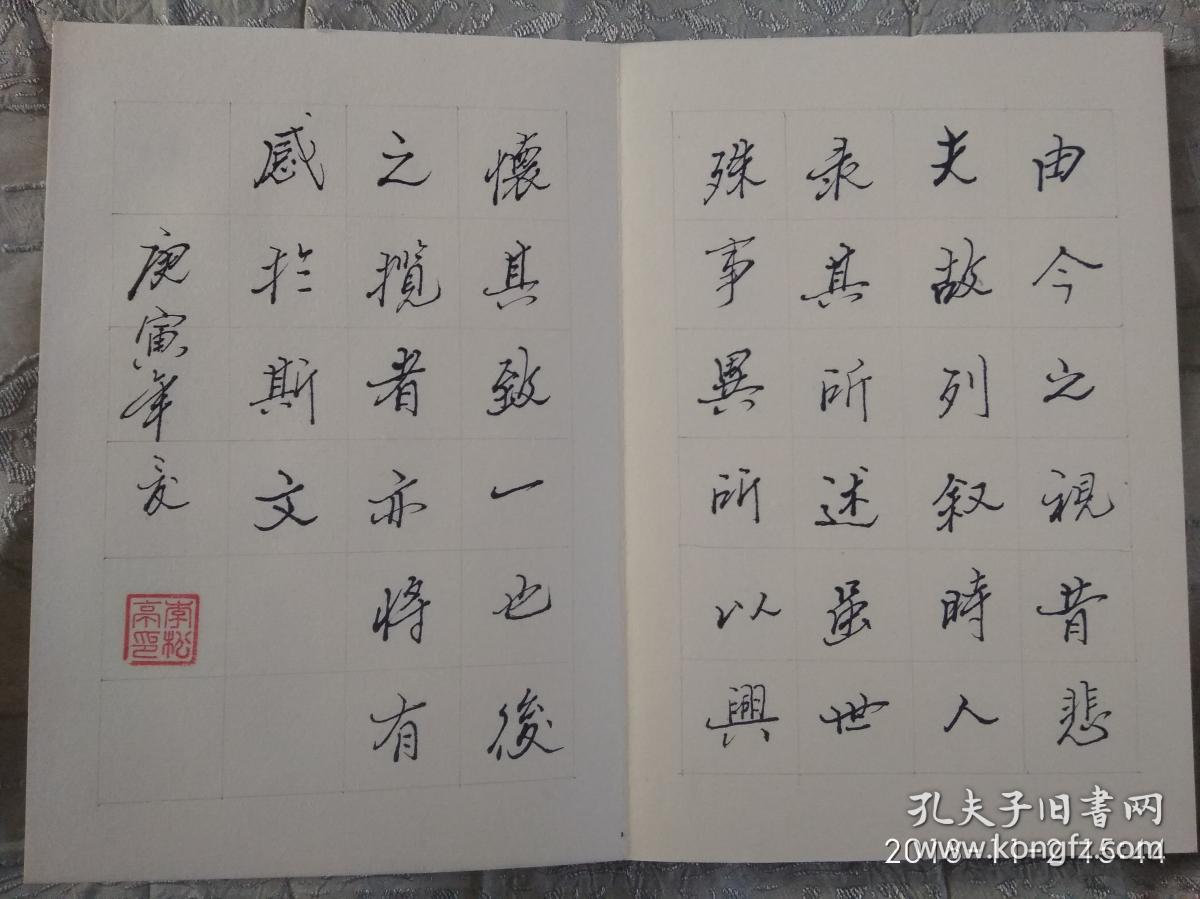 由今之視昔悲
夫故列叙時人
录其所述虽世
殊事異所以興
懷其致一也後
之攬者亦将有
感扵斯文
庚寅年夏
李松亭印
孔夫子旧書网
www.kongfz.com